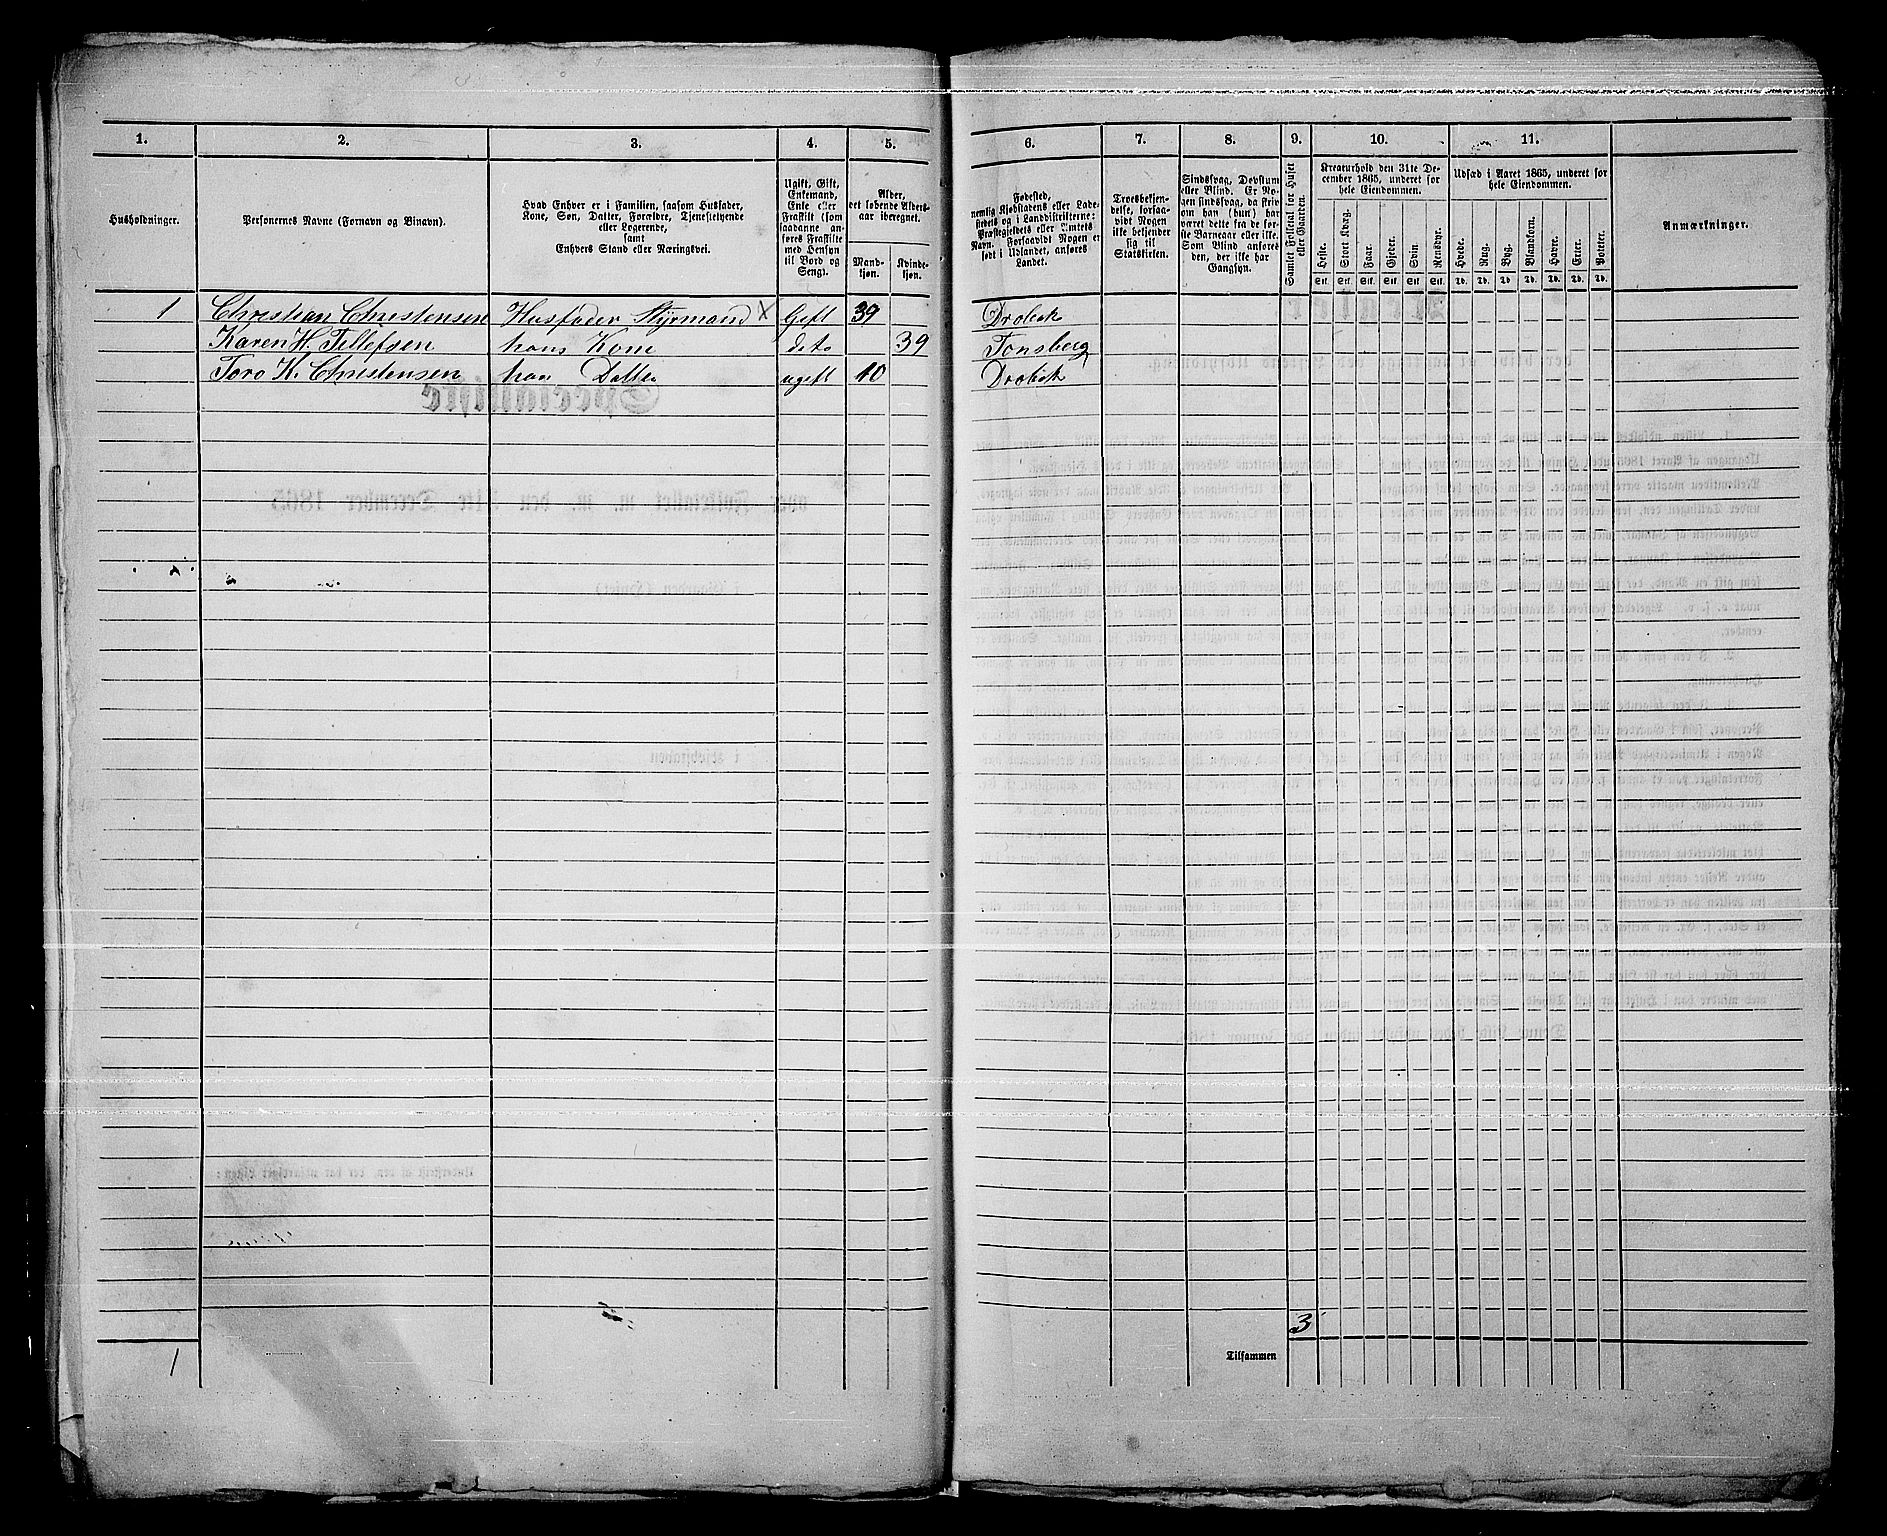 1. 2. 3. 4. 5. 6. 7. 8. 9. 10. 11.
Husholdninger.
Personernes Navne (Fornavn og Binavn).
Hvad Enhver er i Familien, saasom Husfader,
Kone, Søn, Datter, Forældre, Tjenestetyende
eller Logerende,
samt
Enhvers Stand eller Næringsvei.
Ugift, Gift,
Enkemand,
Enke eller
Fraskilt (som
saadanne an-
føres Fraskilte
med Hensyn
til Bord og
Seng).
Alder,
det løbende Alders-
aar iberegnet.
Mand-
kjøn.
Kvinde-
kjøn.
Fødested,
nemlig Kjøbstadens eller Lade-
stedets og i Landdistrikterne:
Præstegjeldets eller Amtets
Navn. Forsaavidt Nogen er
født i Udlandet, anføres
Landet.
Troesbekjen-
delse, forsaa-
vidt Nogen
ikke bekjender
sig til
Statskirken.
Sindssvag, Døvstum
eller Blind. Er No-
gen sindssvag, da skriv
om han (hun) har
været dette fra de før-
ste Barneaar eller ikke.
Som Blind anføres
den, der ikke har
Gangsyn.
Samlet Folketal for Huset
eller Gaarden.
Kreaturhold den 31te De-
cember 1865, underet for
hele Eiendommen.
Heste. Stort Kvæg. Faar. Gjeder. Sviin. Rensdyr.
Stk. Stk. Stk. Stk. Stk. Stk.
Udsæd i Aaret 1865, underet for
hele Eiendommen.
Hvede. Rug. Byg. Blandkorn. Havre. Erter. Poteter.
Td. Td. Td. Td. Td. Td. Td.
Anmærkninger.
1 Christian Christensen Husfader Styrmand X Gift 39 Drobak
Karen H. Tellefsen hans Kone deto 39 Tonsberg
Toro K. Christensen han Datter ugift 10 Drobak
3
Tilsammen
1